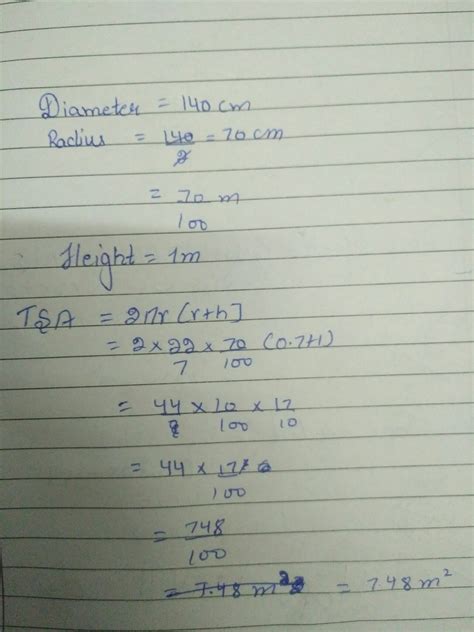 Diameter = 140 cm
Radius = 140/2 = 70 cm
= 70/100 m
Height = 1m
TSA = 2πr [r+h]
= 2 × 22/7 × 70/100 (0.7+1)
= 44 × 10/100 × 17/10
= 44 × 17/100
= 748/100
= 7.48 m² = 7.48 m²